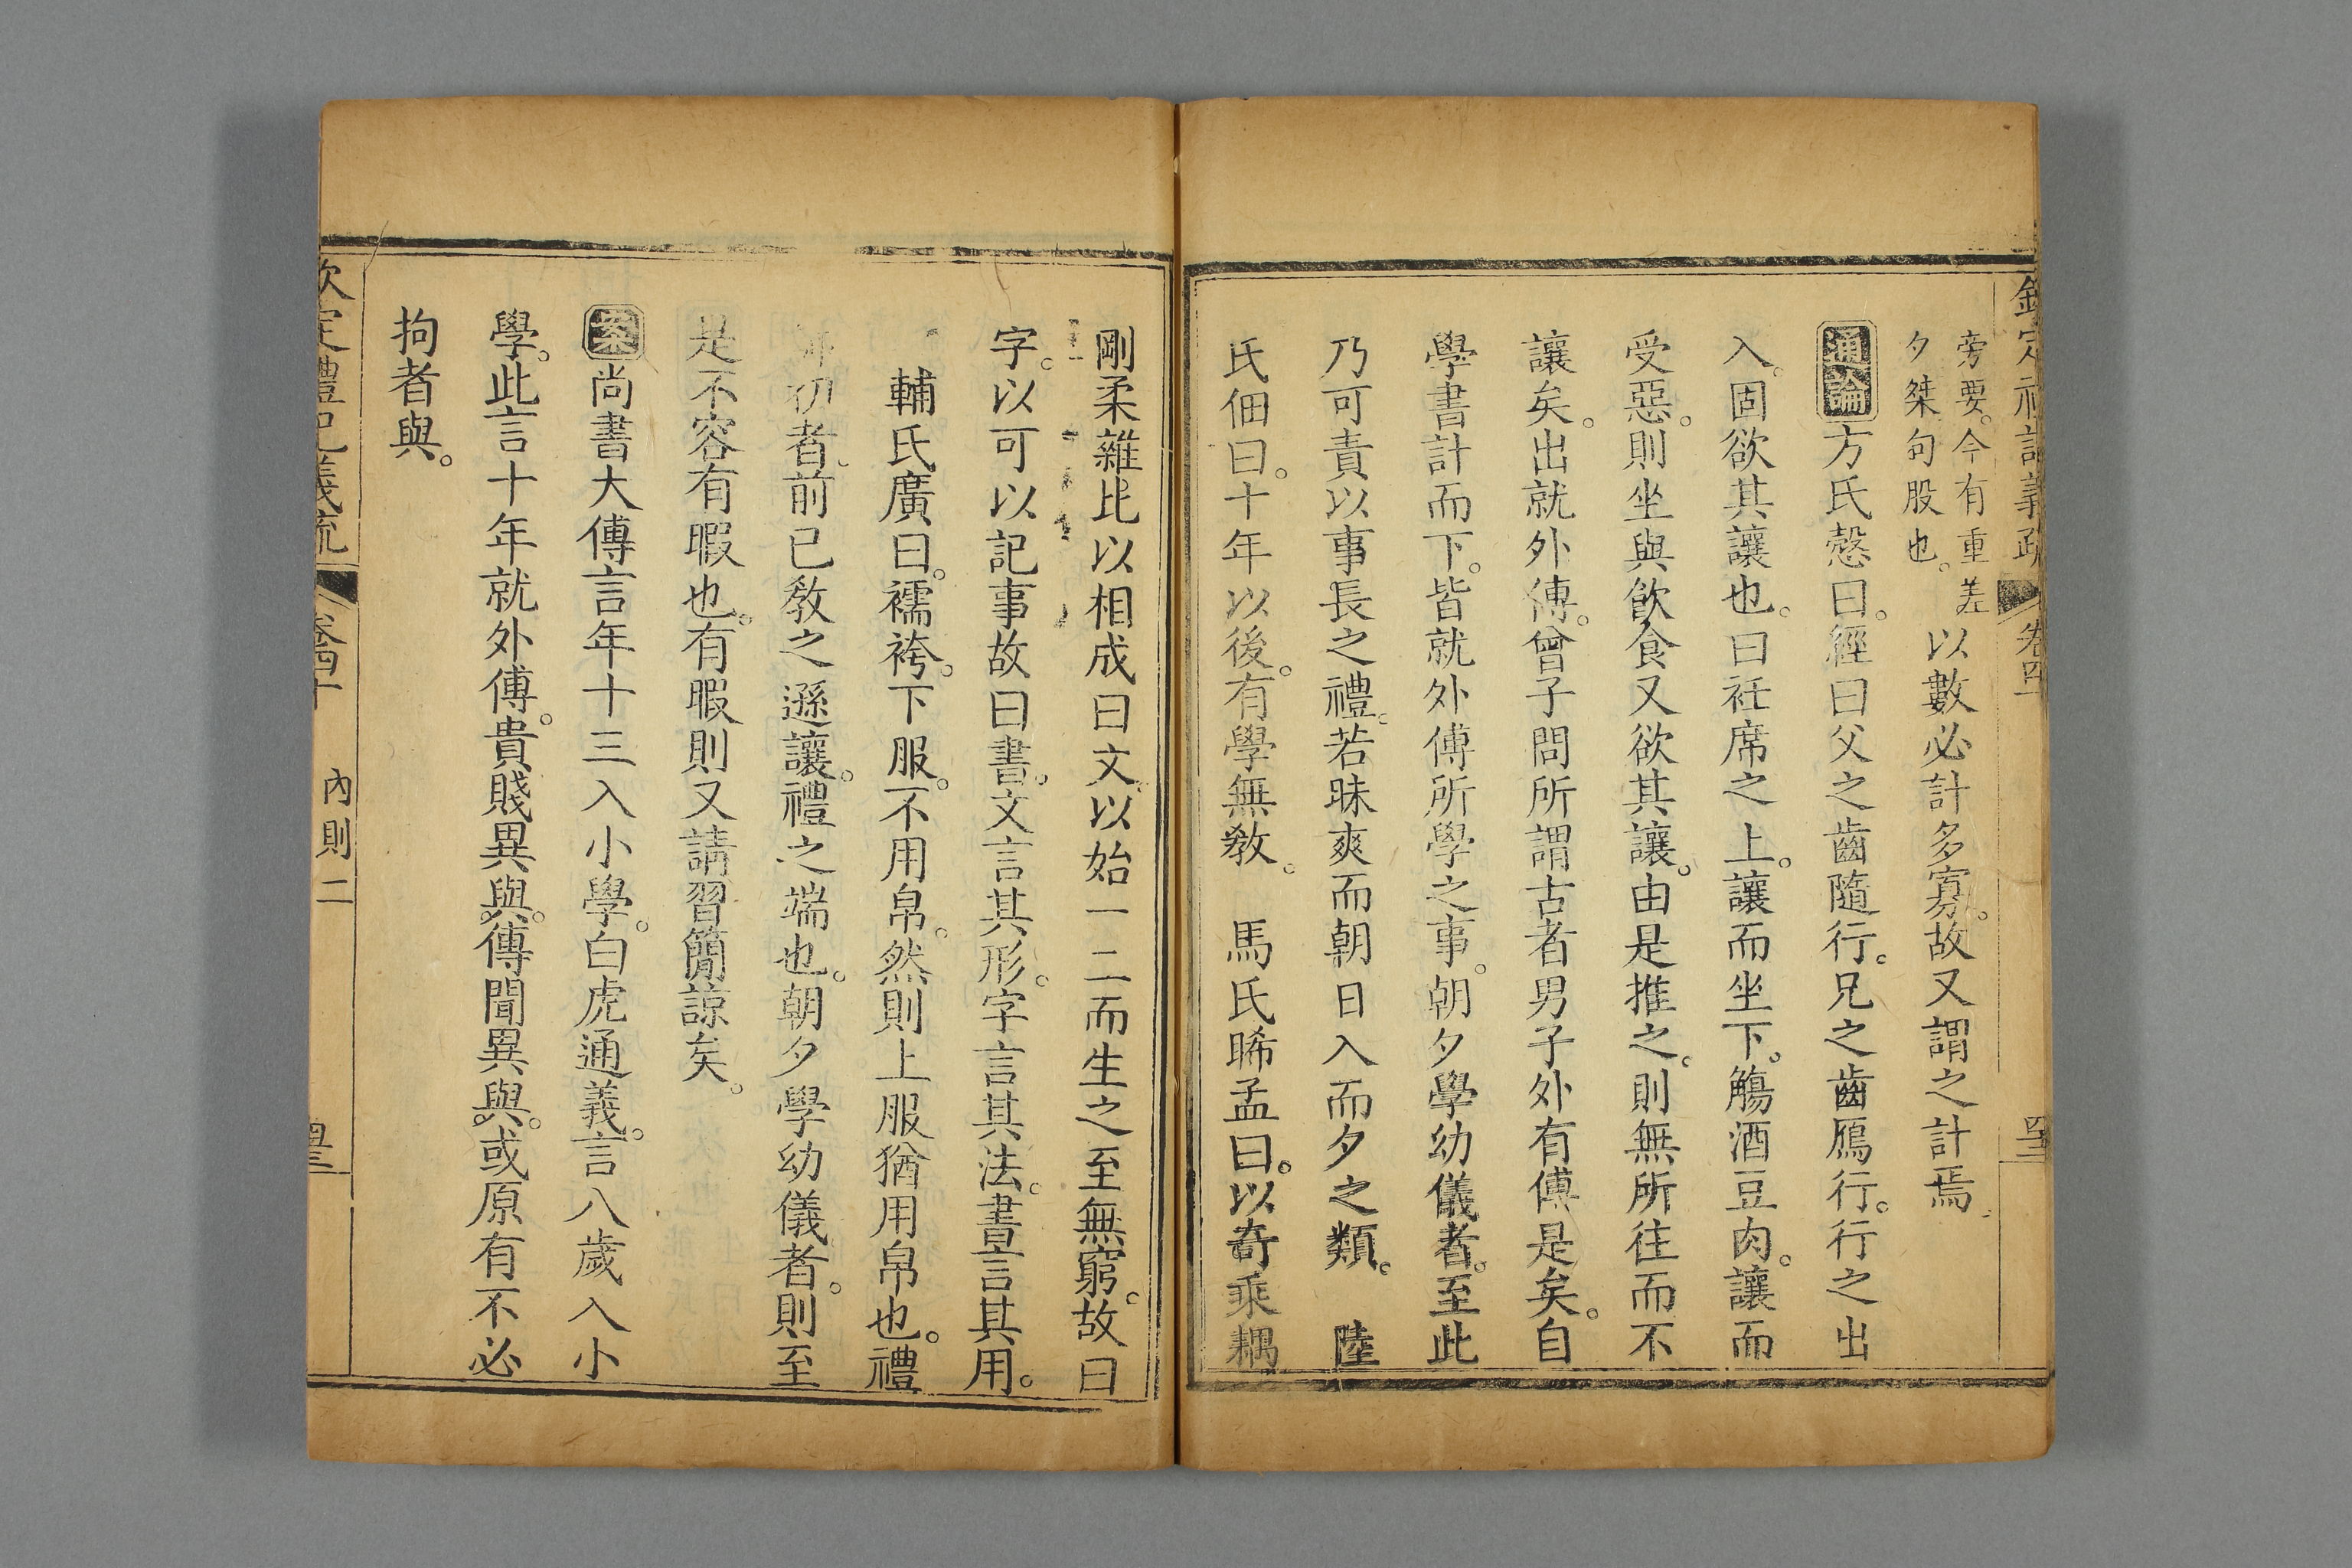 欽定禮記義疏 卷四十
旁要。今有重差
夕桀句股也。
以數必計多寡。故又謂之計焉。
通論方氏慤曰。經曰父之齒隨行。兄之齒鴈行。行之出
入。固欲其讓也。曰衽席之上。讓而坐下。觴酒豆肉。讓而
受惡。則坐與飲食又欲其讓。由是推之。則無所往而不
讓矣。出就外傅。曾子問所謂古者男子外有傅是矣。自
學書計而下。皆就外傅所學之事。朝夕學幼儀者。至此
乃可責以事長之禮。若昧爽而朝日入而夕之類。 陸
氏佃曰。十年以後。有學無教。 馬氏晞孟曰。以奇乘耦
剛柔雜比以相成曰文。以始一二而生之至無窮。故曰
字。以可以記事故曰書。文言其形。字言其法。書言其用。
輔氏廣曰。襦袴。下服。不用帛。然則上服猶用帛也。禮
初者。前已教之遜讓。禮之端也。朝夕學幼儀者。則至
是不容有暇也。有暇則又請習簡諒矣。
案尚書大傳言年十三入小學。白虎通義。言八歲入小
學。此言十年就外傅。貴賤異與。傳聞異與。或原有不必
拘者與。
欽定禮記義疏 卷四十 內則二